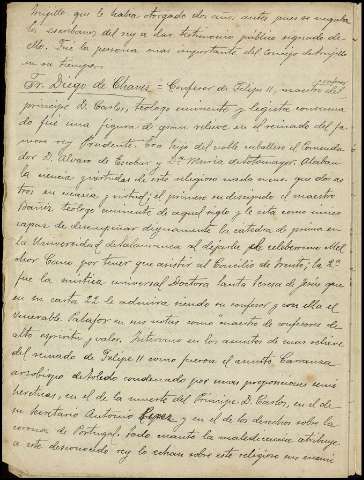 Trujillo que le había otorgado dos años antes pues se negaba
los escribanos del rey a dar testimonio público signado de
ello. Fué la persona mas importante del concejo de Trujillo
en su tiempo.
Fr. Diego de Chaves = Confesor de Felipe II, maestro del
príncipe D. Carlos, teólogo eminente y legista consuma
do fué una figura de gran relieve en el reinado del fa
moso rey Prudente. Era hijo del noble caballero el Comenda
dor D. Alvaro de Escobar y Dª María de Sotomayor. Alaban
la ciencia y virtudes de este religioso nada menos que dos as
tros en ciencia y virtud; el primero su discípulo el maestro
Bañez teólogo eminente de aquel siglo y le cita como unico
capaz de desempeñar dignamente la catedra de prima en
la Universidad de Salamanca al dejarla el celeberrimo Mel
chor Cano por tener que asistir al Concilio de Trento; la 2ª
fue la mística universal Doctora Santa Teresa de Jesús que
en su carta 22 le admira siendo su confesor y con ella el
Venerable Palafox en sus notas como "maestro de confesores de
alto espiritu y valor. Intervino en los asuntos de mas relieve
del reinado de Felipe II como fueron el asunto Carranza
arzobispo de Toledo condenado por unas proposiciones semi
hereticas, en el de la muerte del Príncipe D. Carlos, en el de
su secretario Antonio Perez y en el de los derechos sobre la
corona de Portugal. Todo cuanto la maledicencia atribuye
a este desconocido rey lo echan sobre este religioso sus enemi